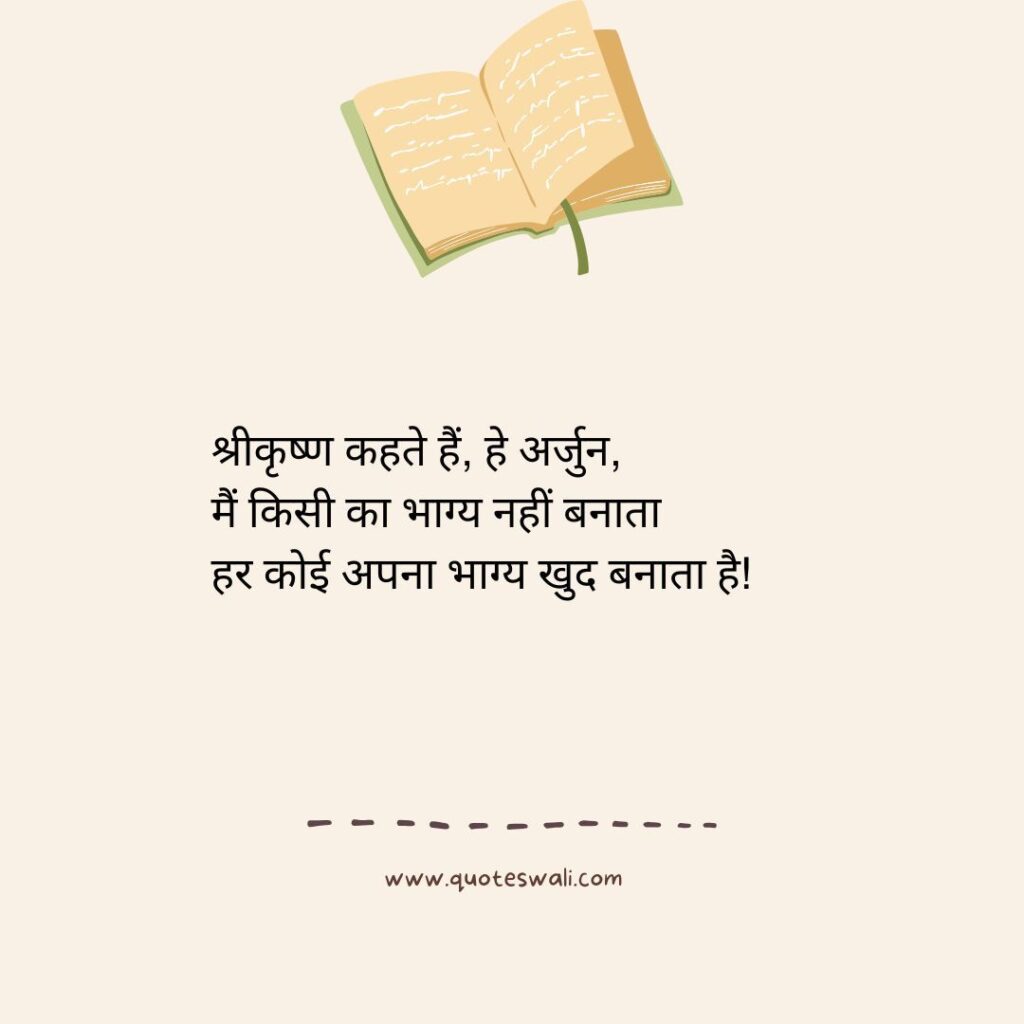 श्रीकृष्ण कहते हैं, हे अर्जुन,
मैं किसी का भाग्य नहीं बनाता
हर कोई अपना भाग्य खुद बनाता है!
www.quoteswali.com